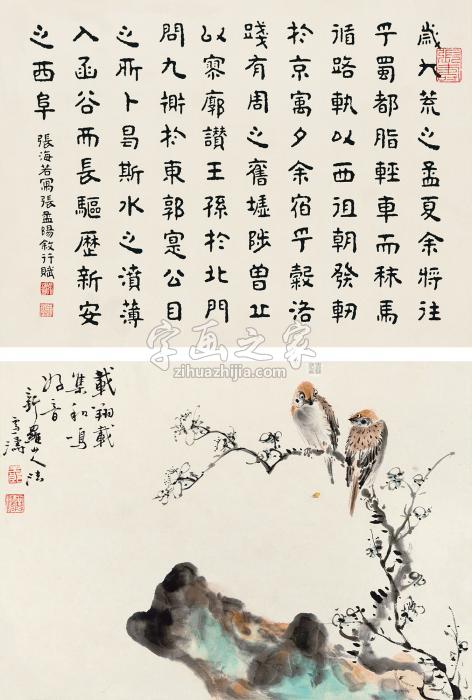 歲大荒之孟夏余將往
乎蜀都脂輕車而秣馬
循路軌以西徂朝發軔
於京寓夕余宿乎穀洛
踐有周之舊墟陟曾丘
以寥廓讚王孫於北門
問九衖於東郭寔公旦
之所卜曷斯水之濆薄
入函谷而長驅歷新安
之西阜
張海若寫張孟陽敘行賦
字画之家
zihuazhijia.com
載翔載
集和鳴
好音
新羅山人法
雪濤